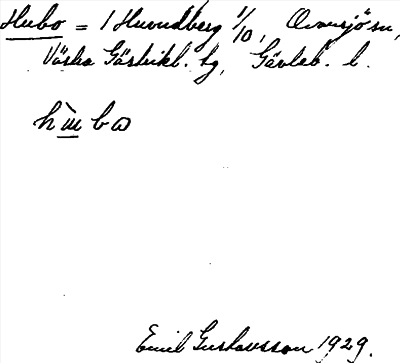 Hubo = 1 Huvudberg 1/10, Ovansjö sn,
Västra Gästrikl. tg, Gävleb. l.
Emil Gustavsson 1929.